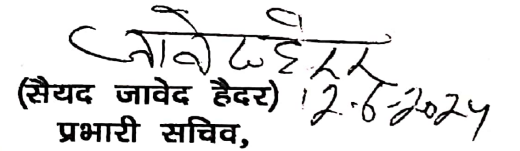 जावेद हैदर
(सैयद जावेद हैदर) 12-6-2024
प्रभारी सचिव,